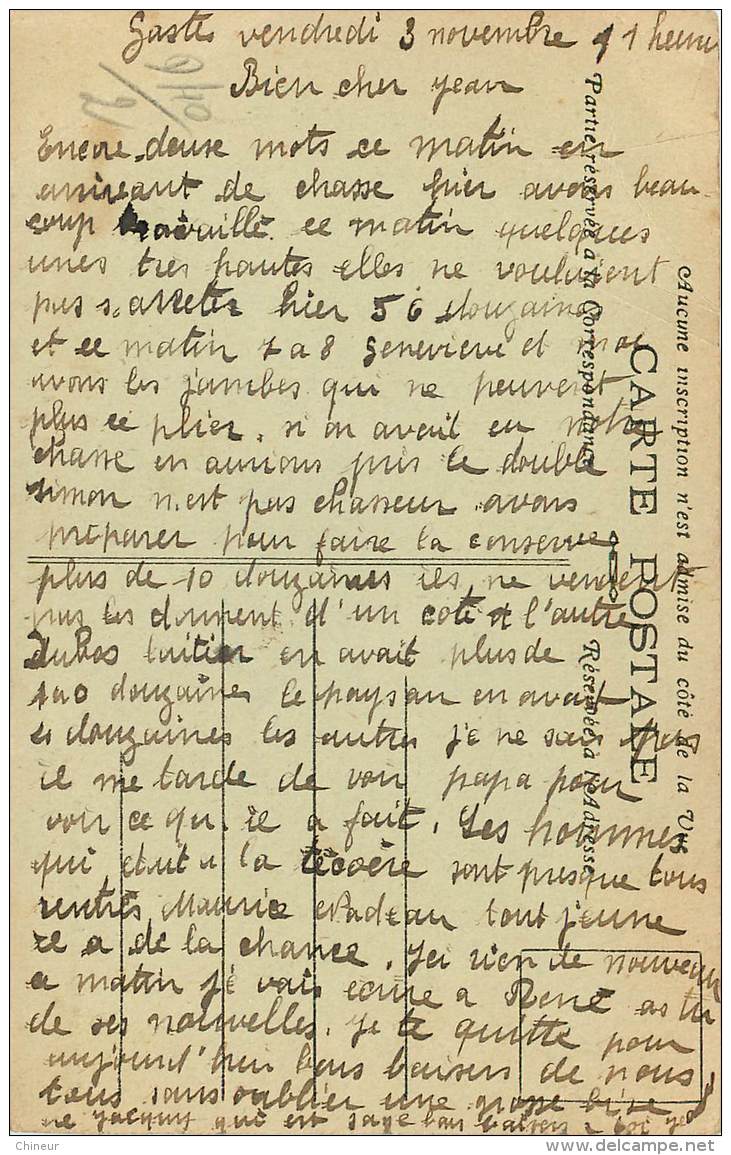 Gastes vendredi 3 novembre 11 heure
Bien cher Jean
Encore deuse mots ce matin en
arrivant de chasse hier avons beau-
coup travaille ce matin quelques
unes tres hautes elles ne voulaient
pas s.arreter hier 56 douzaine
et ce matin 7 a 8 Genevieve et moi
avons les jambes qui ne peuvent
plus ce plier. si on avait eu notre
chasse en aurions pris le double
simon n.est pas chasseur avons
preparer pour faire la conserve
plus de 10 douzaines ils ne vendent
pas les donnent d'un cote et l'autre
Dubos laitier en avait plus de
100 douzaines le paysan en avait
douzaines les autres je ne sais pas
il me tarde de voir papa pour
voir ce qu. il a fait. Les hommes
qui etait a la sont presque tous
rentrés Maurice Nadeau tout jeune
ce a de la chance. Ici rien de nouveau
ce matin je vais ecrire a René as tu
de ses nouvelles. Je te quitte pour
aujourd'hui bons baisers de nous
tous sans oublier une grosse bise
de Jacquy qui est sage bons baisers a toi
9/10
CARTE POSTALE
Aucune inscription n'est admise du côté de la Vue
Partie réservée à la Correspondance
Réservée à l'Adresse
Chineur
delcampe.net